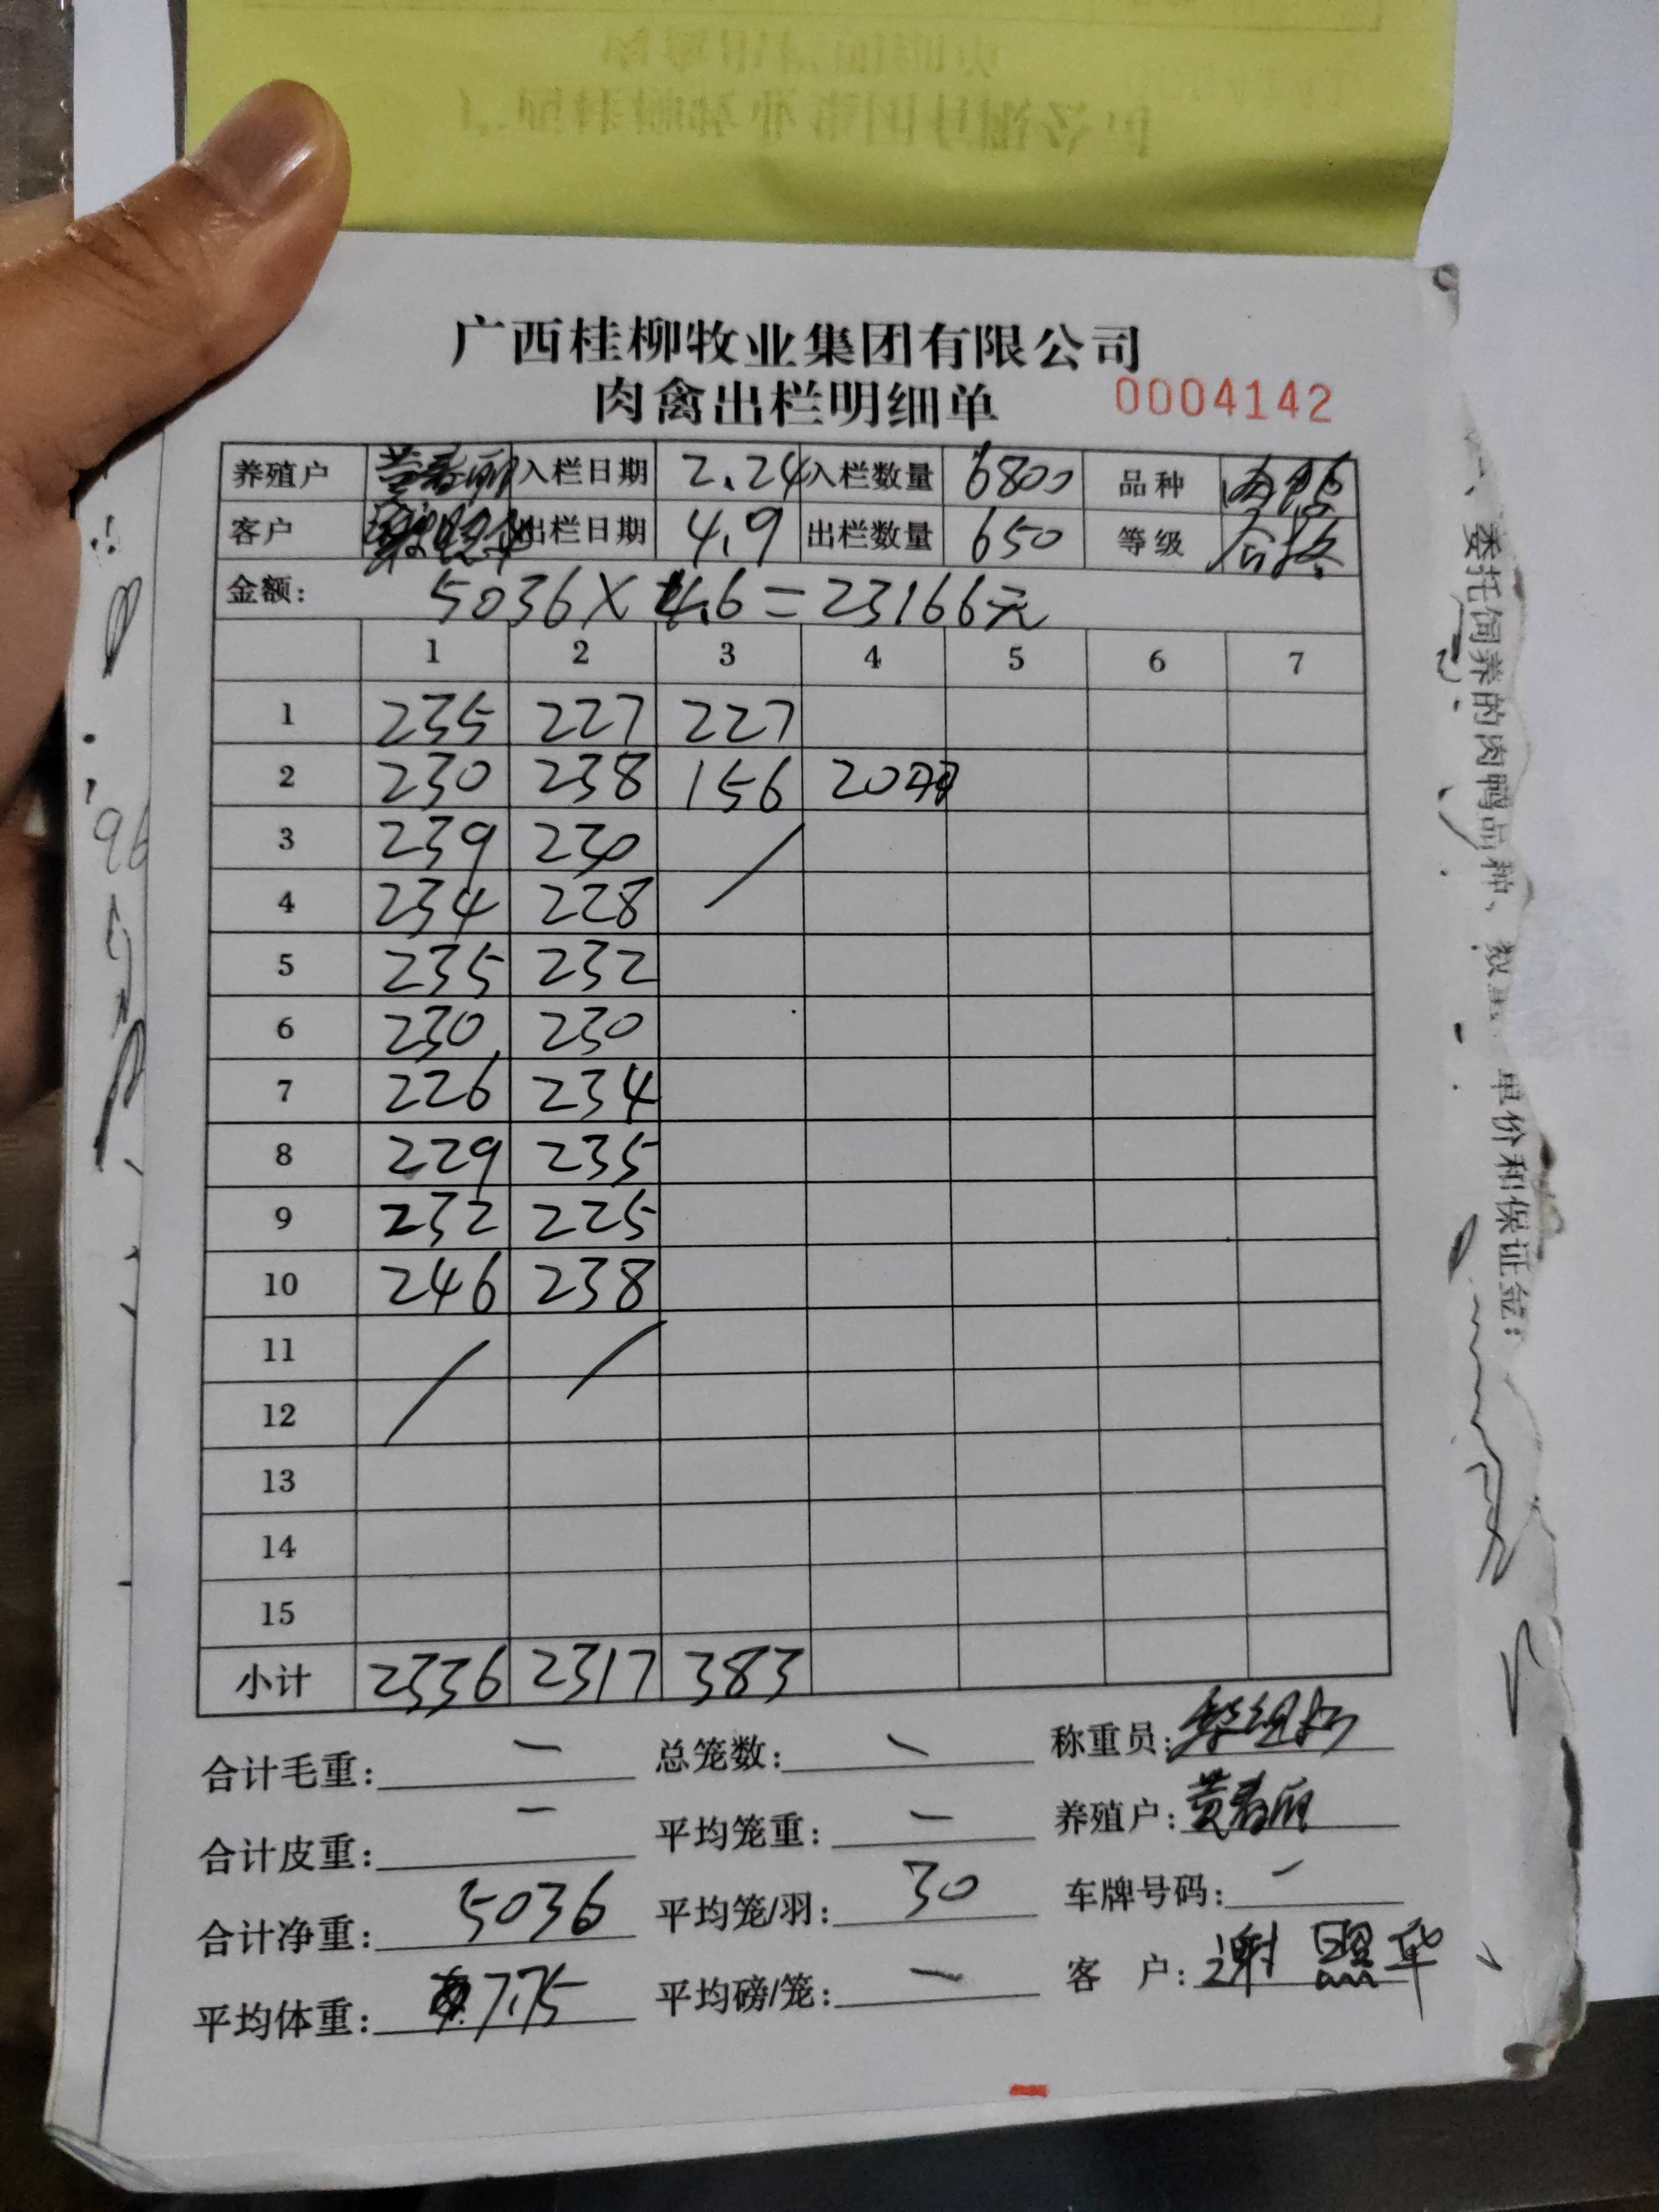 广西桂柳牧业集团有限公司
肉禽出栏明细单 0004142
养殖户 黄春丽 入栏日期 2.24 入栏数量 6800 品种
客户 出栏日期 4.9 出栏数量 650 等级 合格
金额: 5036×4.6=23166元
1 2 3 4 5 6 7
1 235 227 227
2 230 238 156 20羽
3 239 230 /
4 234 228
5 235 232
6 230 230
7 226 234
8 229 235
9 232 225
10 246 238
11 / /
12
13
14
15
小计 2336 2317 383
合计毛重: — 总笼数: — 称重员:
合计皮重: — 平均笼重: — 养殖户: 黄春丽
合计净重: 5036 平均笼/羽: 30 车牌号码: -
平均体重: 7.75 平均磅/笼: — 客 户: 谢 华
、委托饲养的肉鸭品种、数 单价和保证金: